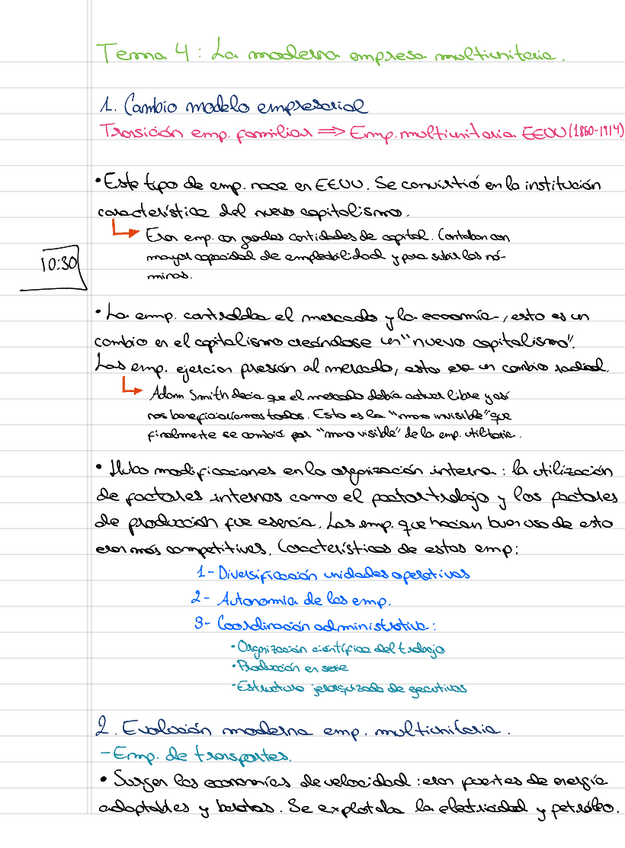 Tema 4: La moderna empresa multiunitaria.
1. Cambio modelo empresarial
Transición emp. familiar ⇒ Emp. multiunitaria EEUU (1860-1914)
• Este tipo de emp. nace en EEUU. Se convirtió en la institución
característica del nuevo capitalismo.
Eran emp. con grandes cantidades de capital. Contaban con
mayor capacidad de empleabilidad y para subir las nó-
minas.
10:30
• La emp. controlaba el mercado y la economía, esto es un
cambio en el capitalismo creándose un "nuevo capitalismo".
Las emp. ejercían presión al mercado, esto era un cambio radical.
Adam Smith decía que el mercado debía actuar libre y así
nos beneficiaríamos todos. Esto es la "mano invisible" que
finalmente se cambió por "mano visible" de la emp.
• Hubo modificaciones en la organización interna: la utilización
de factores internos como el factor trabajo y los factores
de producción fue esencia. Las emp. que hacían buen uso de esto
eran más competitivas. Características de estas emp:
1- Diversificación unidades operativas
2- Autonomía de las emp.
3- Coordinación administrativa:
• Organización científica del trabajo
• Producción en serie
• Estructura jerarquizada de ejecutivos
2. Evolución moderna emp. multiunitaria.
- Emp. de transportes.
• Surgen las economías de velocidad: eran fuertes de energía
adaptables y baratas. Se explotaba la electricidad y petróleo.